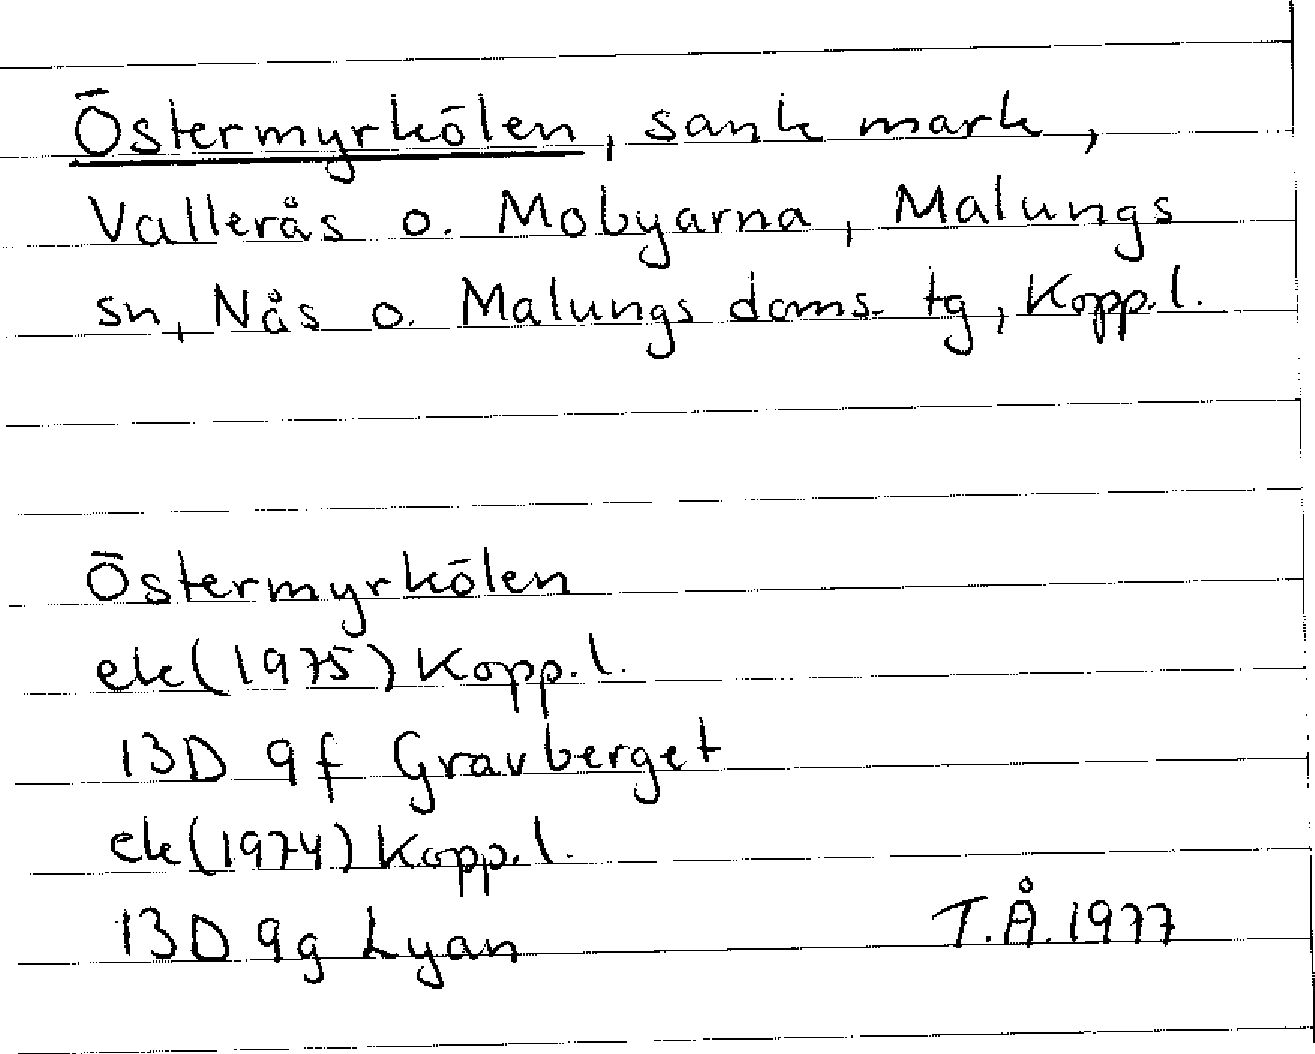 Östermyrkölen, sank mark,
Vallerås o. Mobyarna, Malungs
sn, Nås o. Malungs doms. tg, Kopp.l.
Östermyrkölen
ek(1975) Kopp.l.
13D 9f Gravberget
ek(1974) Kopp.l.
13D 9g Lyan
T.Å.1977